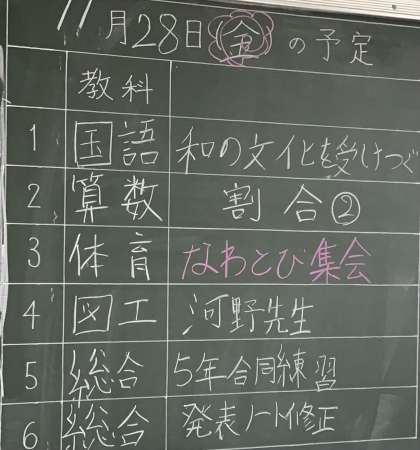 11月28日(金)の予定
教科
1 国語 和の文化を受けつぐ
2 算数 割合②
3 体育 なわとび集会
4 図工 河野先生
5 総合 5年合同練習
6 総合 発表ノート修正